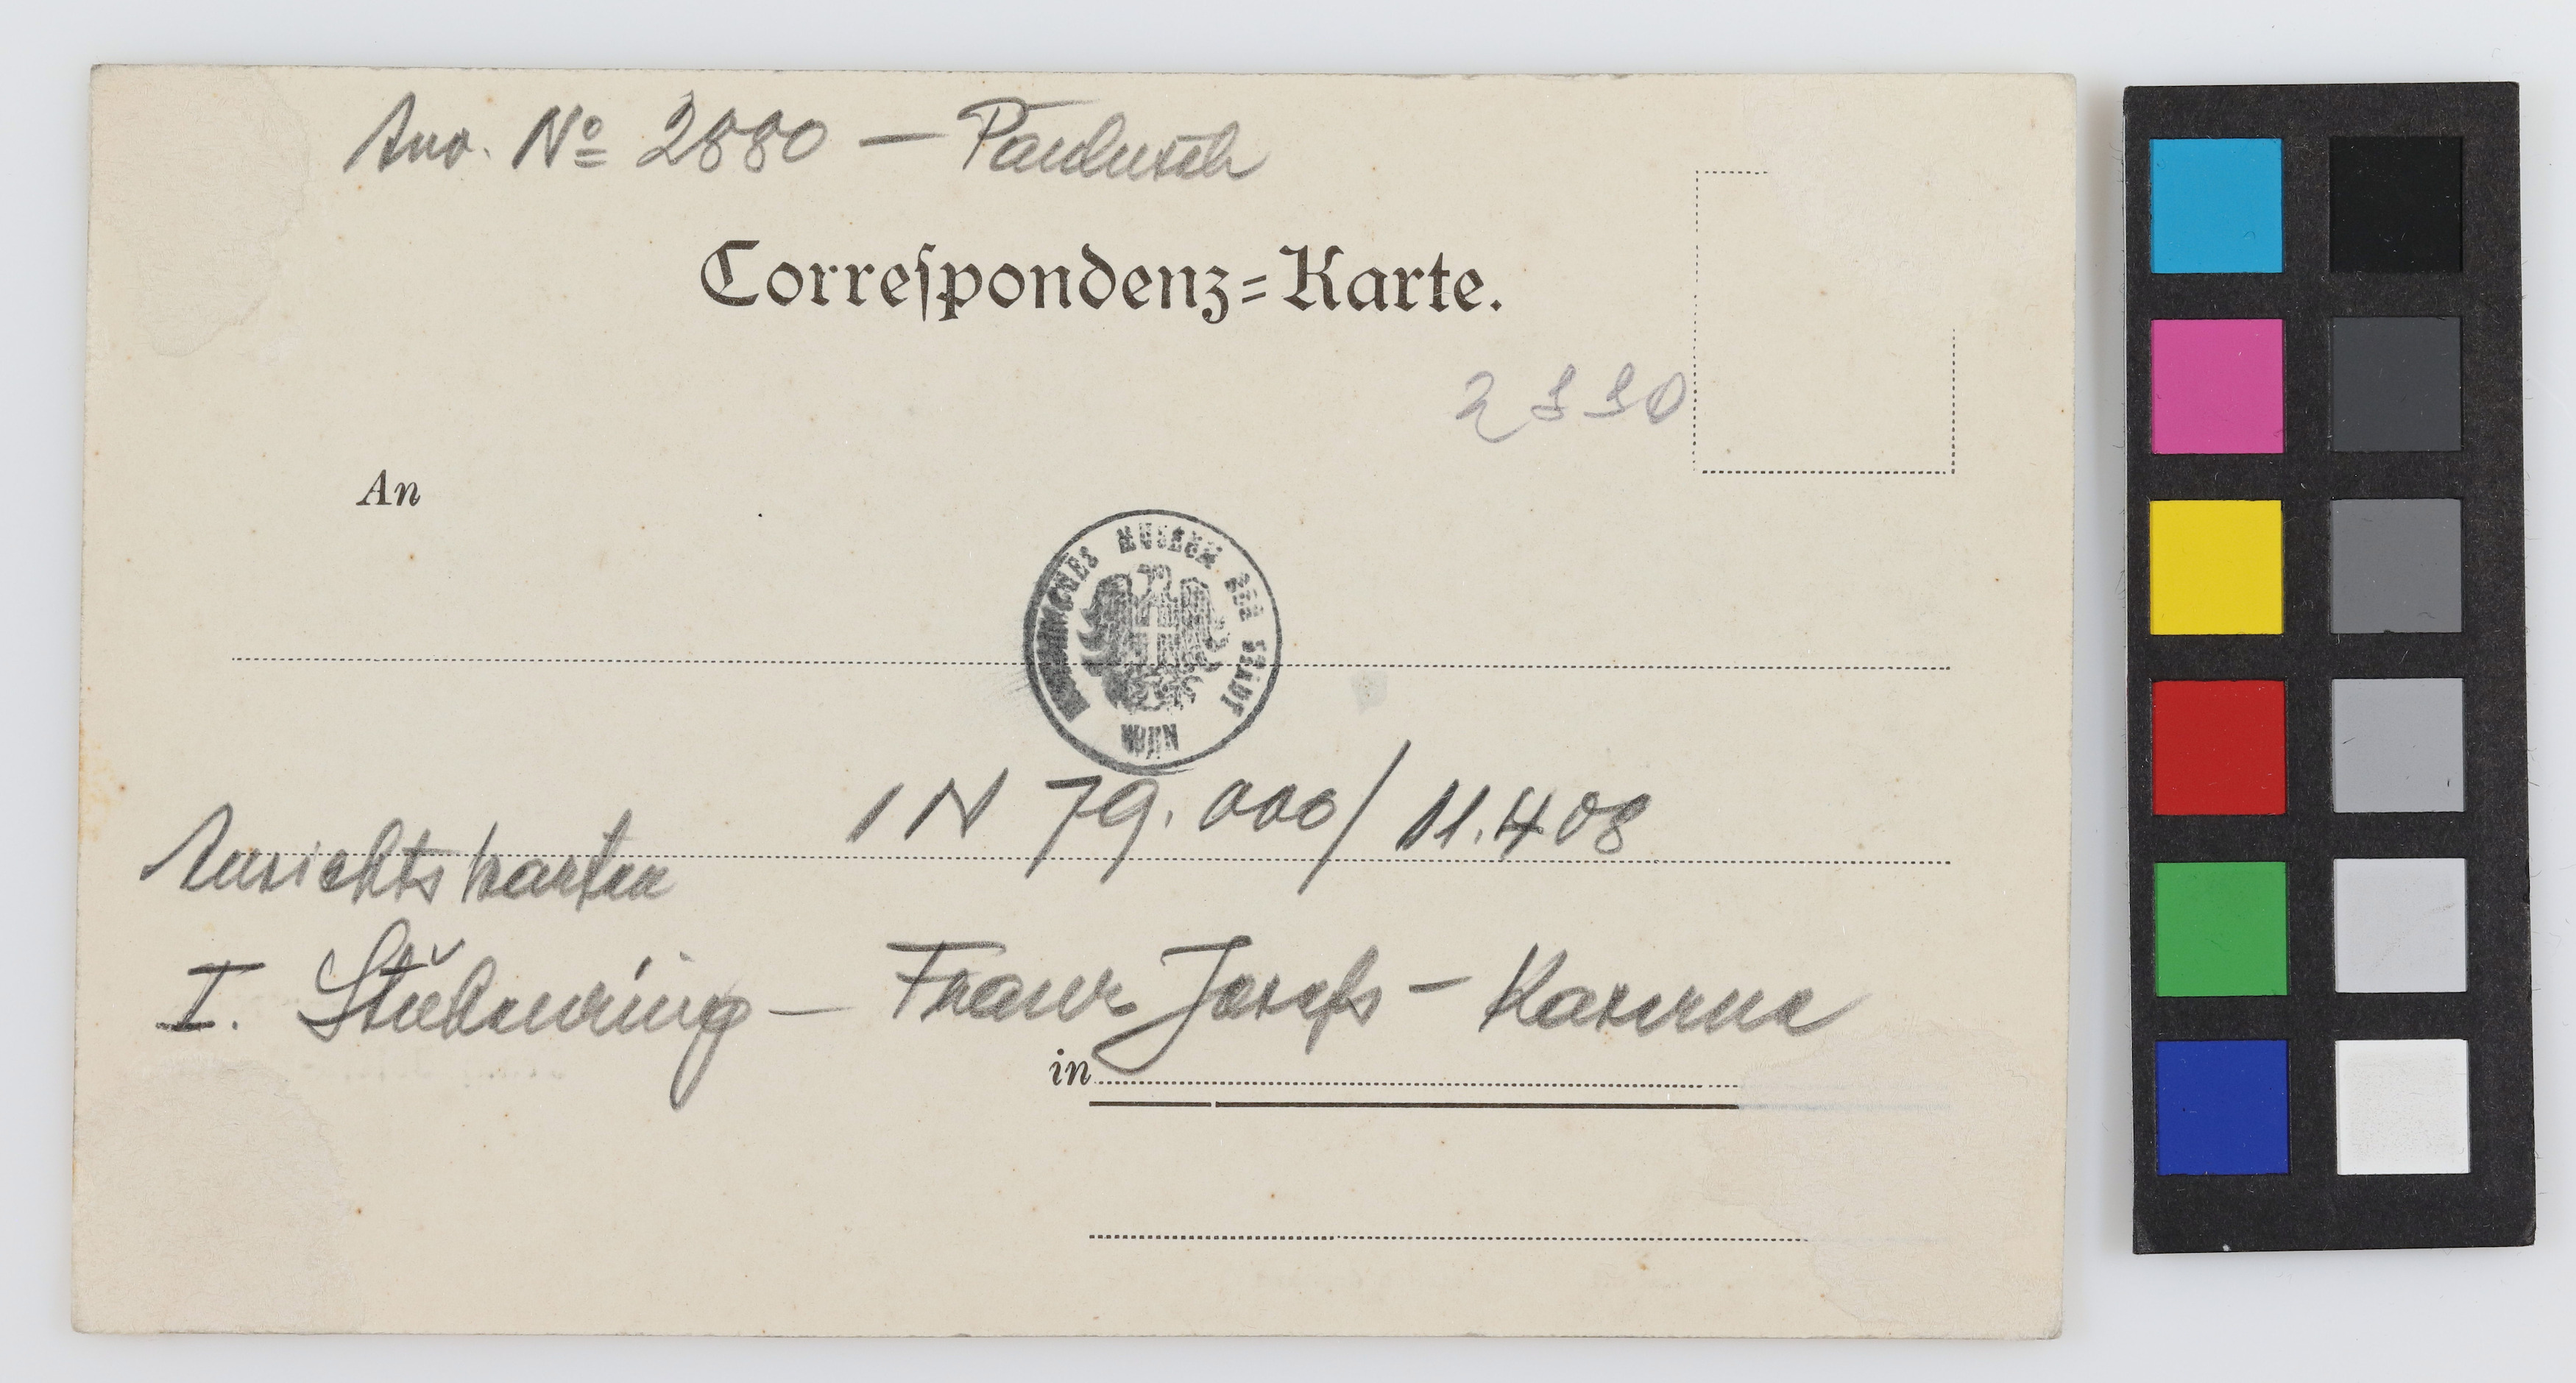 No 2880 — Paulusch
Correſpondenz=Karte.
An
MUSEUM DER STADT
WIEN
IN 79.000/11.408
Ansichtskarten
I. Stubenring — Franz Josefs - Kaserne
in